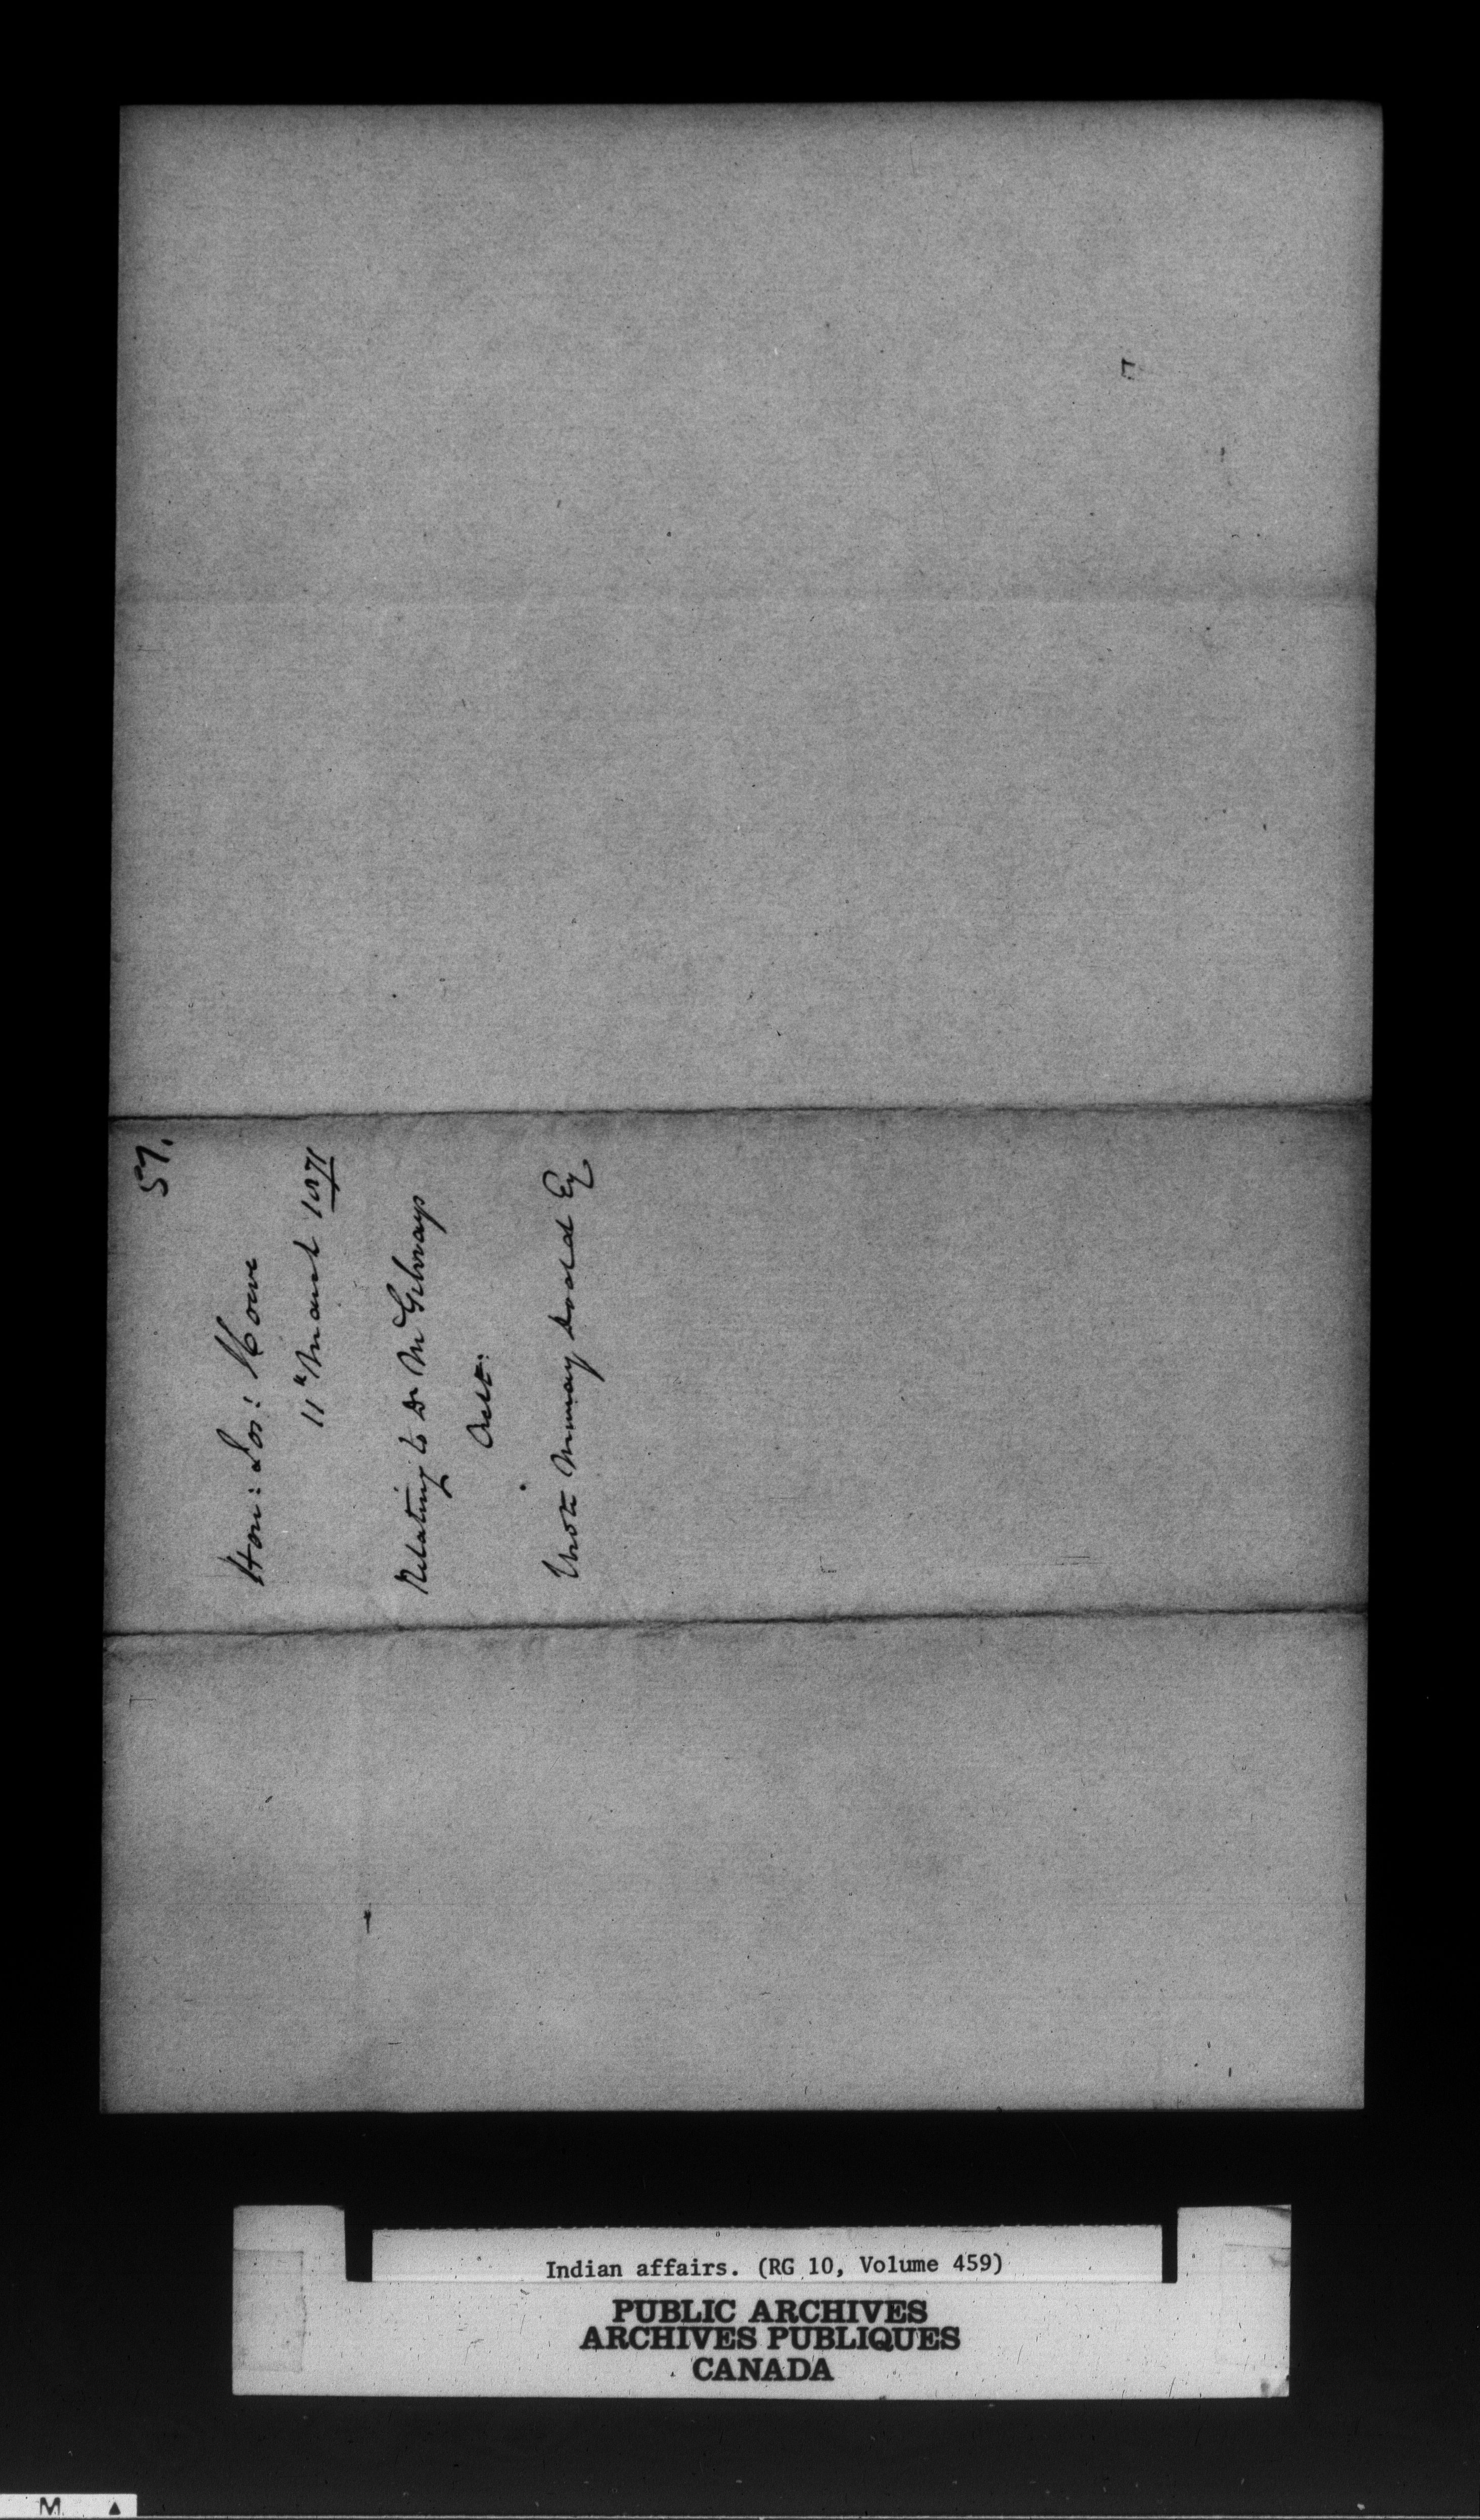 57.
Hon: Jos: Howe
11" March 1871
Relating to Dr McGilvrays
Acct.
Wrote Murray Dodd Esq
Indian affairs. (RG 10, Volume 459)
PUBLIC ARCHIVES
ARCHIVES PUBLIQUES
CANADA
M